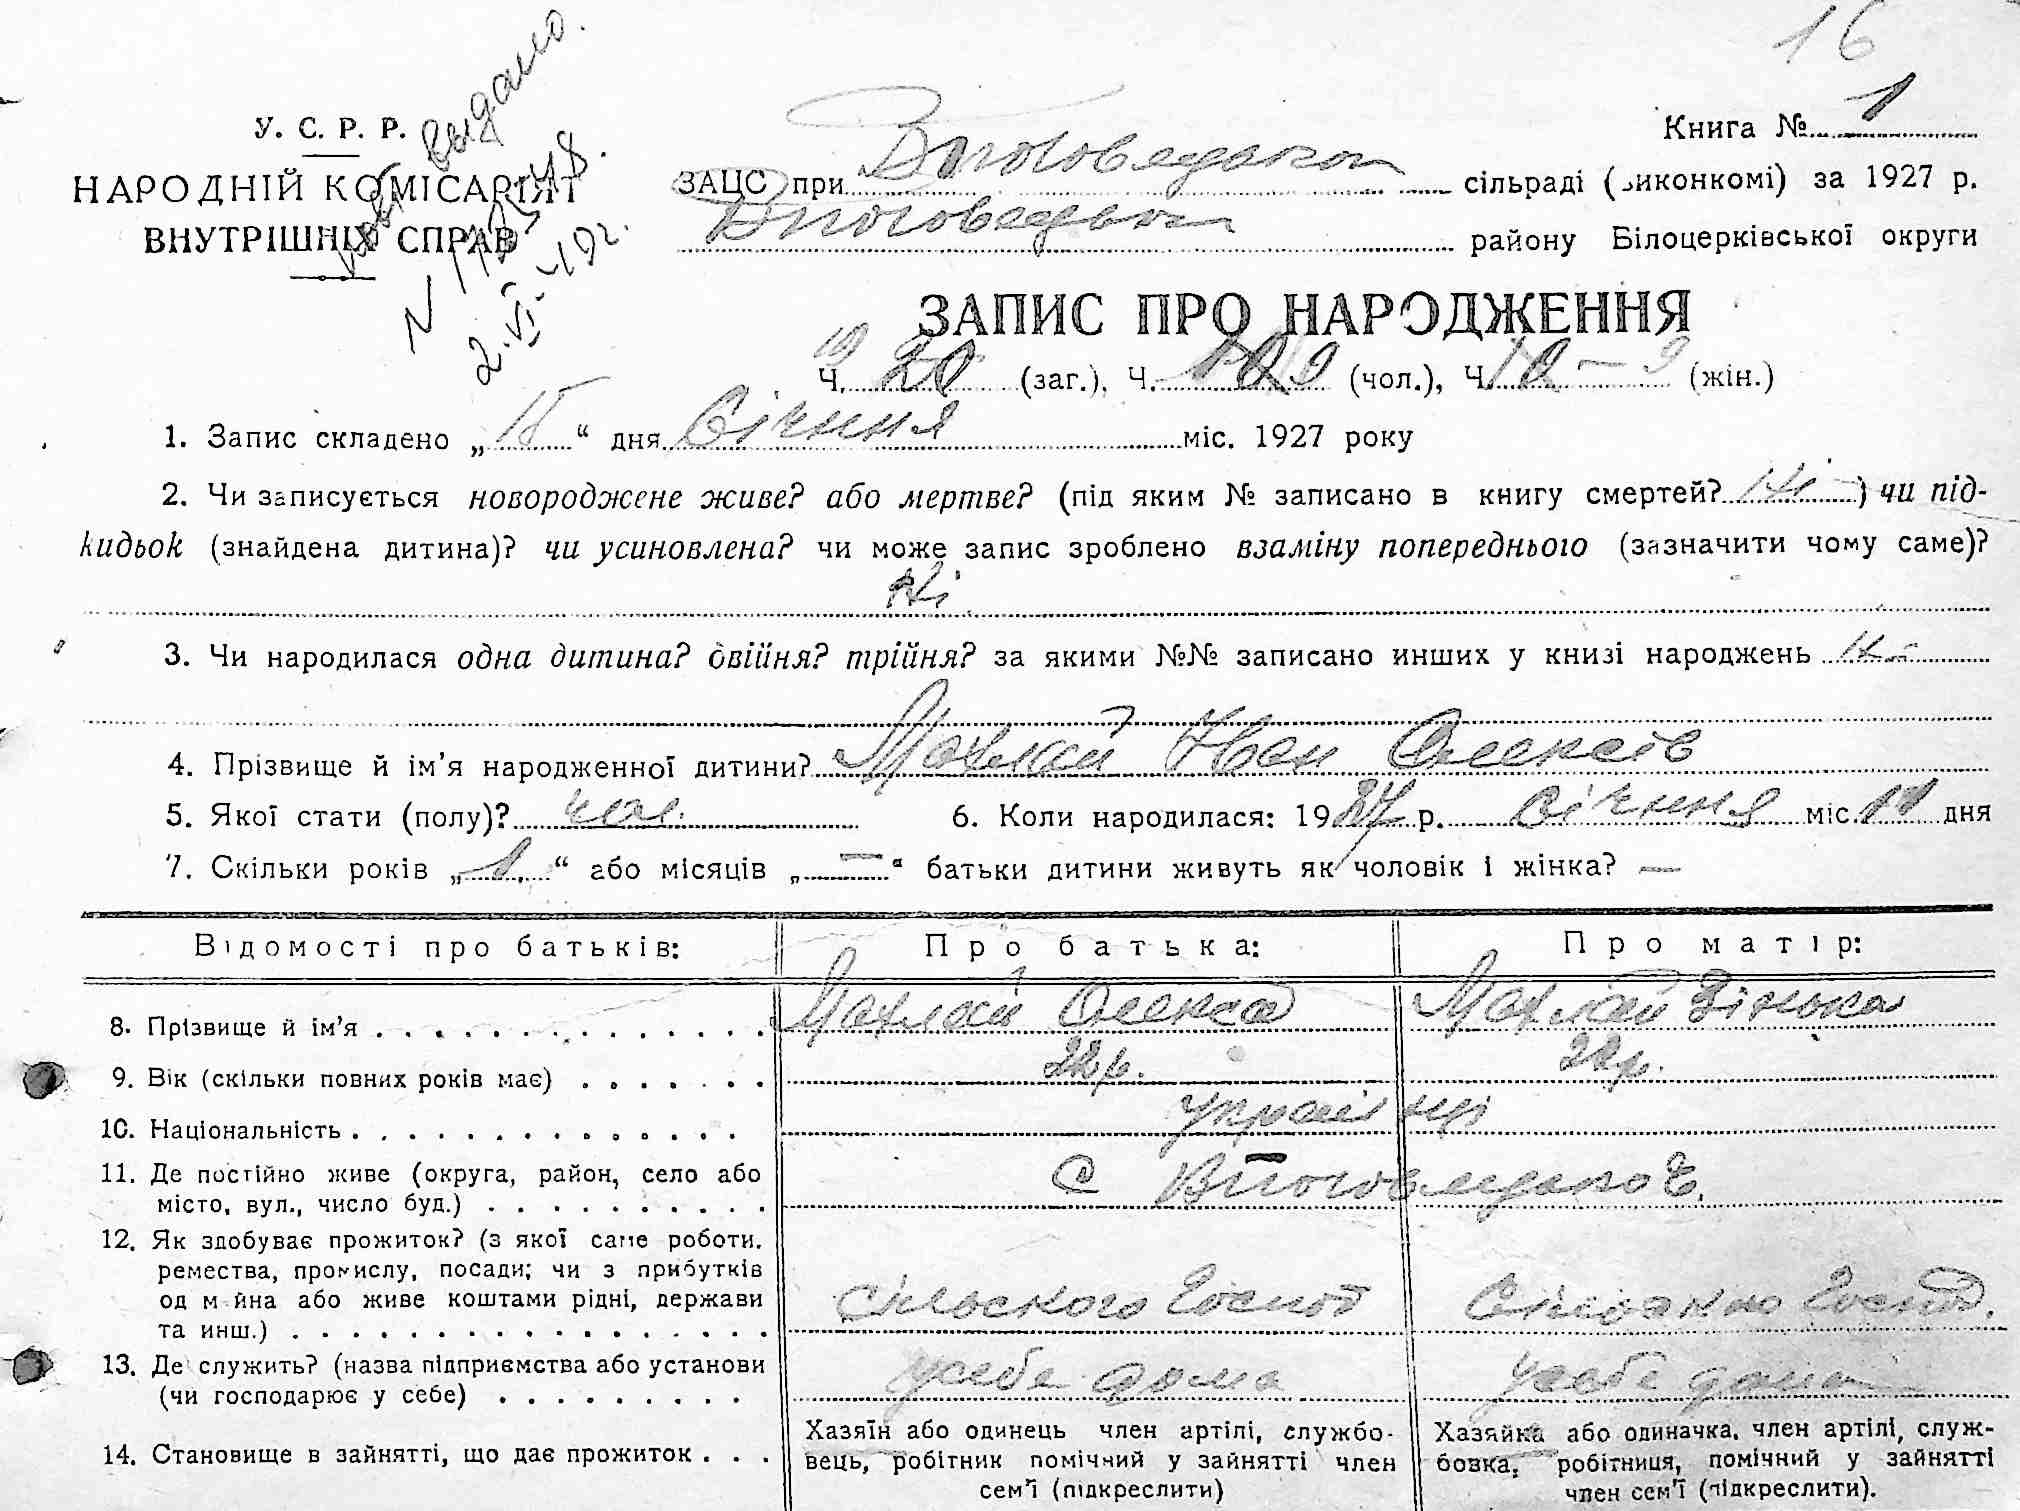 16
У. С. Р. Р.
НАРОДНІЙ КОМІСАРІЯТ
ВНУТРІШНІХ СПРАВ
выдано.
2.VI-49г.
Книга № 1
ЗАЦС при сільраді (виконкомі) за 1927 р.
району Білоцерківської округи
ЗАПИС ПРО НАРОДЖЕННЯ
Ч. 20 (заг.), Ч. 9 (чол.), Ч. (жін.)
1. Запис складено „15“ дня Січння міс. 1927 року
2. Чи записується новороджене живе? або мертве? (під яким № записано в книгу смертей? Ні) чи під-
кидьок (знайдена дитина)? чи усиновлена? чи може запис зроблено взаміну попереднього (зазначити чому саме)?
Ні
3. Чи народилася одна дитина? двійня? трійня? за якими №№ записано инших у книзі народжень
4. Прізвище й ім’я народженної дитини? Махлай Іван Олексів
5. Якої стати (полу)? чол. 6. Коли народилася: 1927 р. січння міс. 11 дня
7. Скільки років „1.“ або місяців „—“ батьки дитини живуть як чоловік і жінка? —
Відомості про батьків: Про батька: Про матір:
8. Прізвище й ім’я Махлай Олекса Махлай Зінька
9. Вік (скільки повних років має) 22р. 22р.
10. Національність українці
11. Де постійно живе (округа, район, село або
місто, вул., число буд.) с
12. Як здобуває прожиток? (з якої саме роботи.
ремества, промислу, посади; чи з прибутків
од майна або живе коштами рідні, держави
та инш.) сільского Господ Господ.
13. Де служить? (назва підприємства або установи
(чи господарює у себе) усебе дома усебе дома
14. Становище в зайнятті, що дає прожиток
Хазяїн або одинець член артілі, службо-
вець, робітник помічний у зайнятті член
сем’ї (підкреслити)
Хазяйка або одиначка. член артілі, служ-
бовка, робітниця, помічний у зайнятті
член сем’ї (підкреслити).